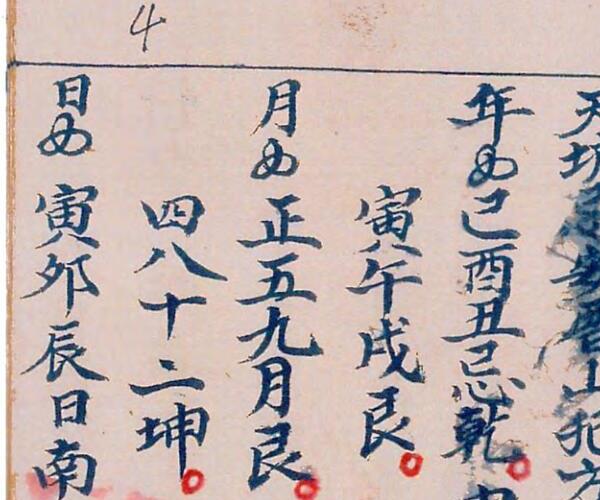 4
天
山犯方
年如巳酉丑忌乾
寅午戌艮
月如正五九月艮
四八十二坤
日如寅卯辰日南